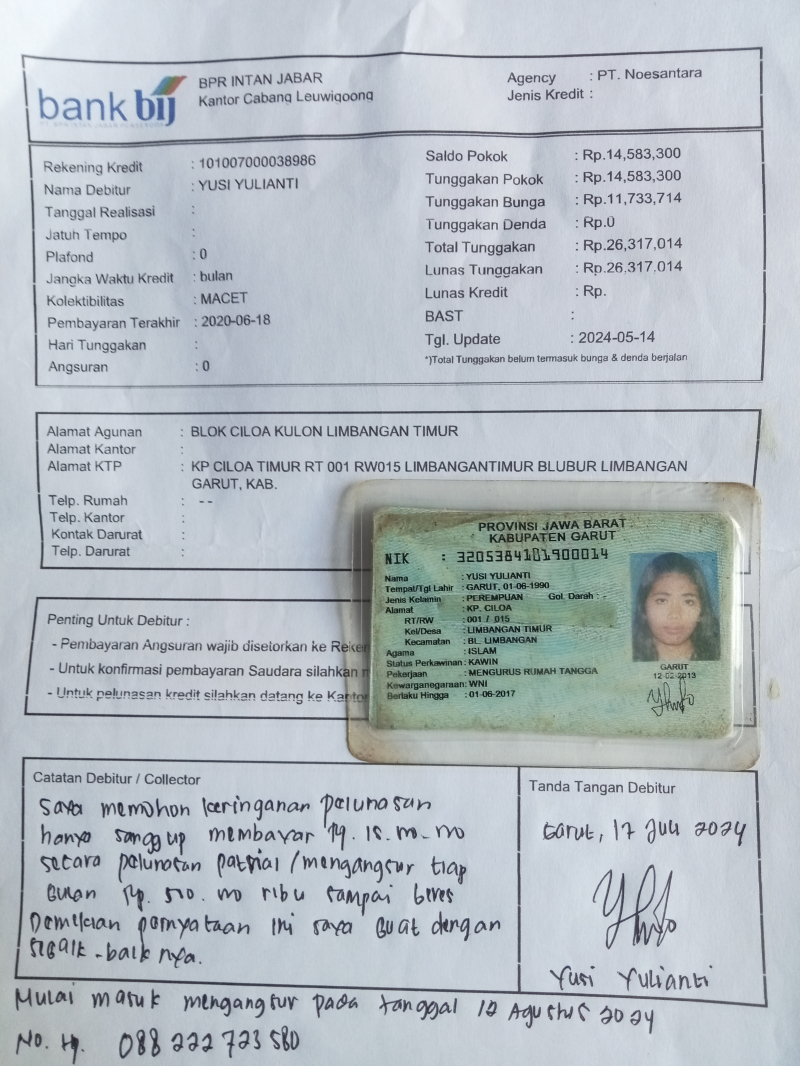 bank bij
BPR INTAN JABAR
Kantor Cabang Leuwigoong
Agency : PT. Noesantara
Jenis Kredit :
Rekening Kredit : 101007000038986
Nama Debitur : YUSI YULIANTI
Tanggal Realisasi :
Jatuh Tempo :
Plafond : 0
Jangka Waktu Kredit : bulan
Kolektibilitas : MACET
Pembayaran Terakhir : 2020-06-18
Hari Tunggakan :
Angsuran : 0
Saldo Pokok : Rp.14,583,300
Tunggakan Pokok : Rp.14,583,300
Tunggakan Bunga : Rp.11,733,714
Tunggakan Denda : Rp.0
Total Tunggakan : Rp.26,317,014
Lunas Tunggakan : Rp.26,317,014
Lunas Kredit : Rp.
BAST :
Tgl. Update : 2024-05-14
*)Total Tunggakan belum termasuk bunga & denda berjalan
Alamat Agunan : BLOK CILOA KULON LIMBANGAN TIMUR
Alamat Kantor :
Alamat KTP : KP CILOA TIMUR RT 001 RW015 LIMBANGANTIMUR BLUBUR LIMBANGAN
GARUT, KAB.
Telp. Rumah : --
Telp. Kantor :
Kontak Darurat :
Telp. Darurat :
PROVINSI JAWA BARAT
KABUPATEN GARUT
NIK : 3205384101900014
Nama : YUSI YULIANTI
Tempat/Tgl Lahir : GARUT, 01-06-1990
Jenis Kelamin : PEREMPUAN Gol. Darah : -
Alamat : KP. CILOA
RT/RW : 001 / 015
Kel/Desa : LIMBANGAN TIMUR
Kecamatan : BL. LIMBANGAN
Agama : ISLAM
Status Perkawinan: KAWIN
Pekerjaan : MENGURUS RUMAH TANGGA
Kewarganegaraan: WNI
Berlaku Hingga : 01-06-2017
GARUT
12-02-2013
Penting Untuk Debitur :
- Pembayaran Angsuran wajib disetorkan ke Reke
- Untuk konfirmasi pembayaran Saudara silahkan
- Untuk pelunasan kredit silahkan datang ke Kantor
Catatan Debitur / Collector
Saya memohon keringanan pelunasan
hanya sanggup membayar Rp.
secara pelunasan patrial / mengangsur tiap
Bulan Rp. ribu sampai beres
Demikian pernyataan ini saya buat dengan
sebaik-baik nya.
Tanda Tangan Debitur
Garut, 17 Juli 2024
Yusi Yulianti
Mulai masuk mengangsur pada tanggal 12 Agustus 2024
No. Hp. 088 222 723 580